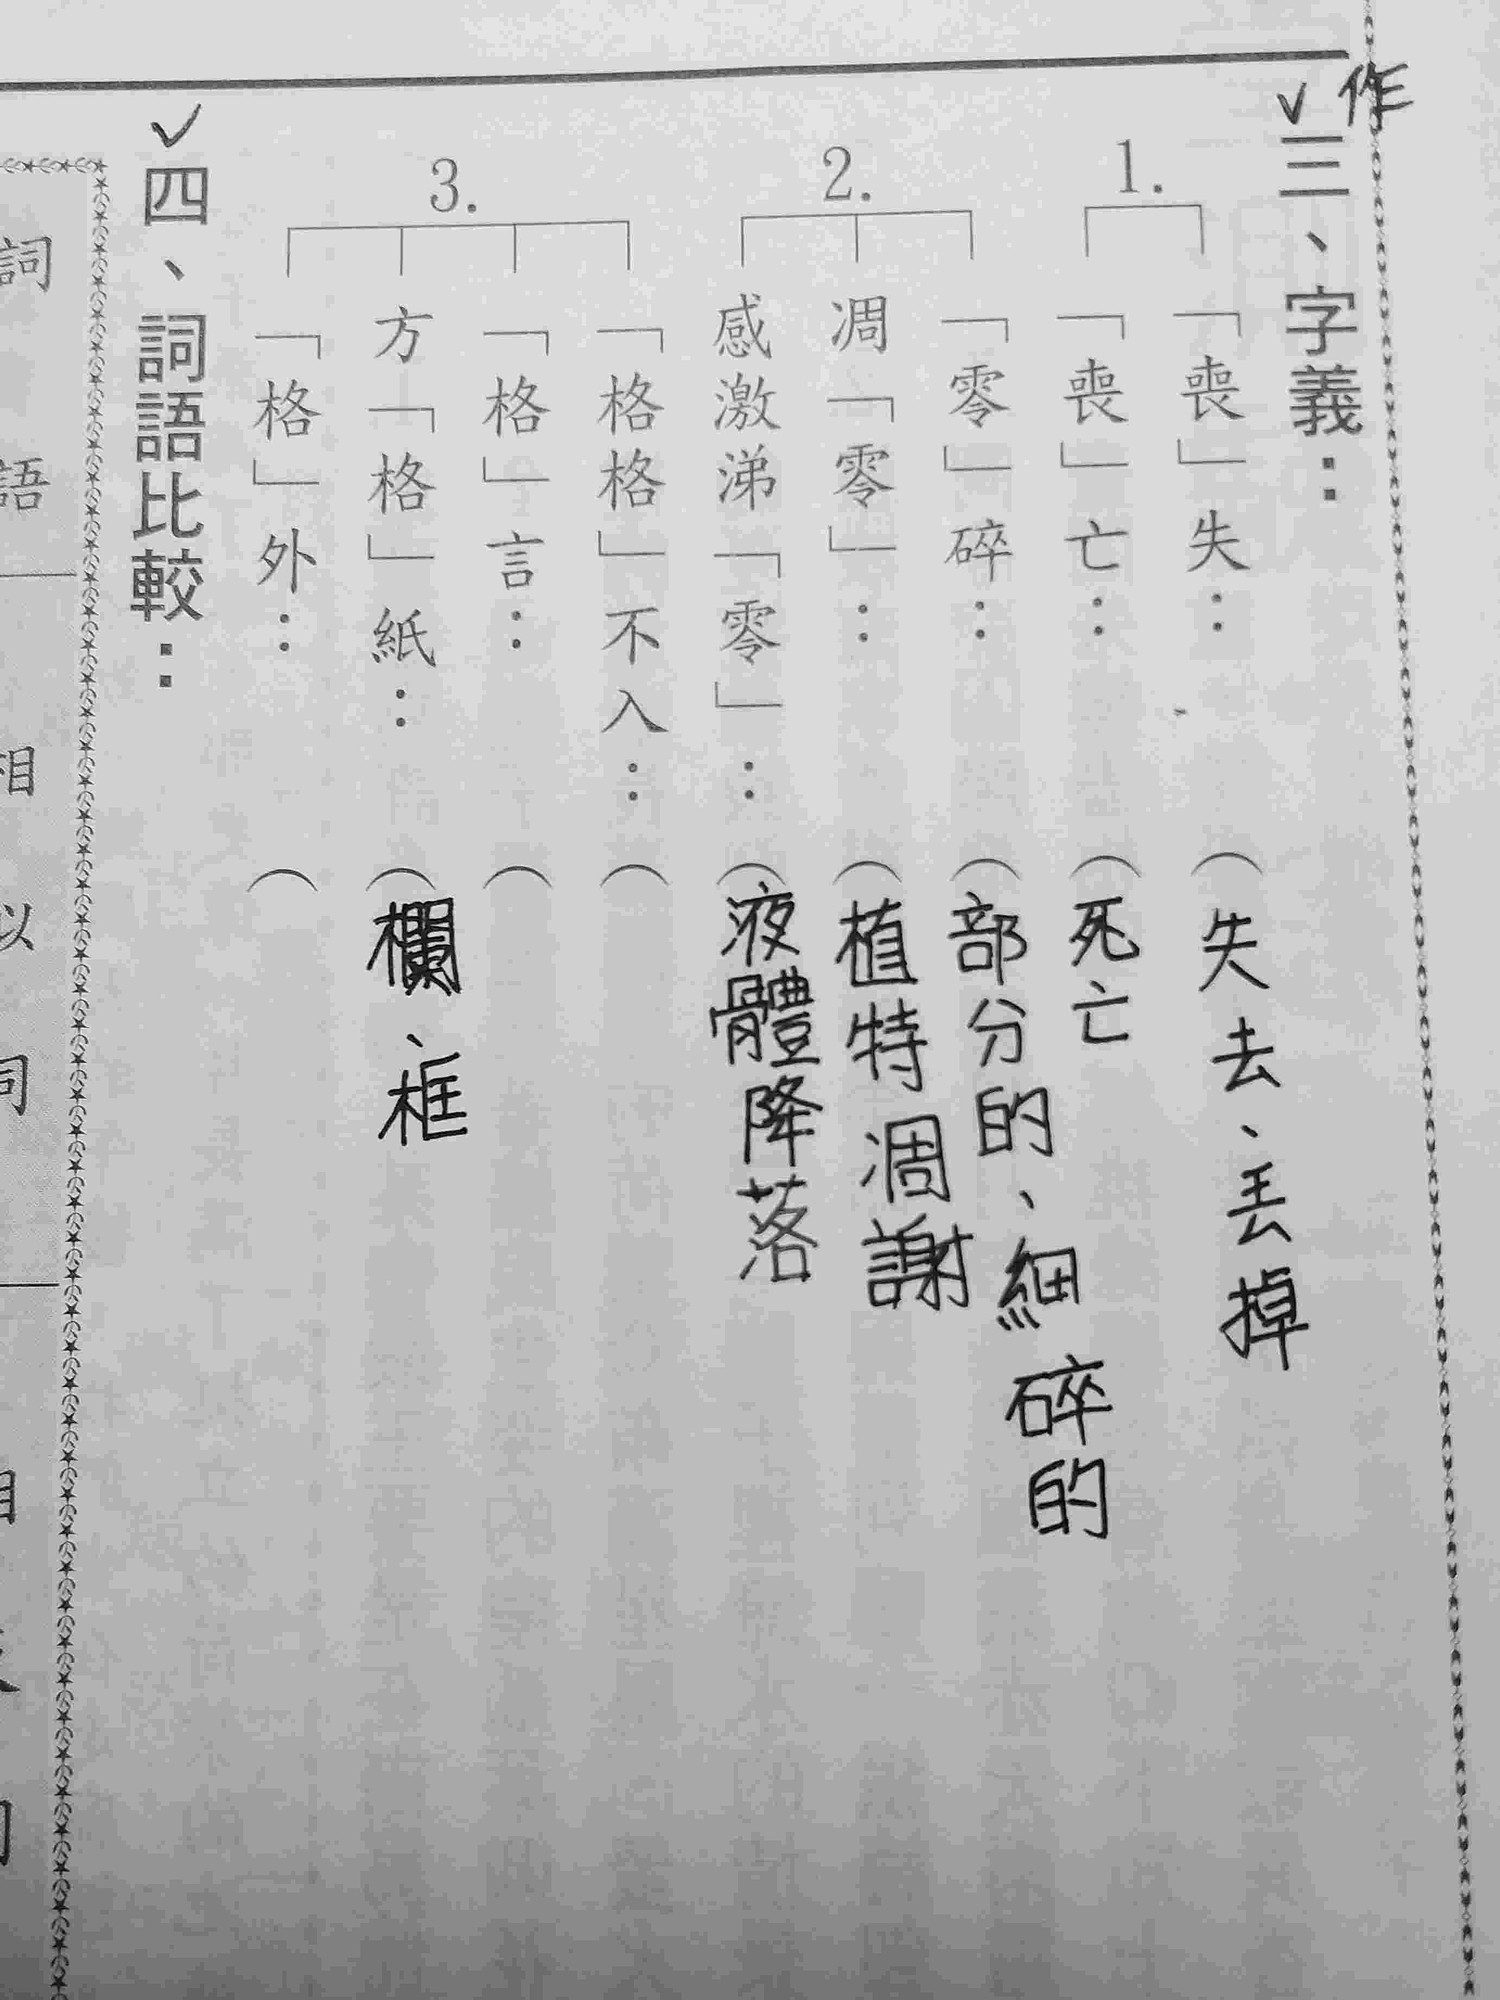 作
✓三、字義：
1.
「喪」失：（失去、丟掉
「喪」亡：（死亡
2.
「零」碎：（部分的、細碎的
凋「零」：（植特凋謝
感激涕「零」：（液體降落
3.
「格格」不入：（
「格」言：（
方「格」紙：（欄、框
「格」外：（
✓四、詞語比較：
詞語
相似詞